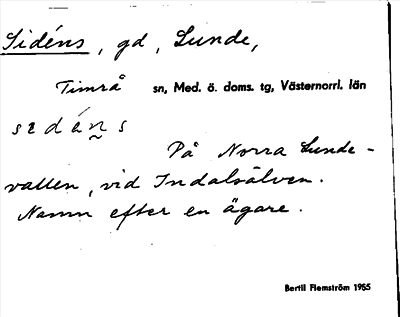 Sidéns, gd, Lunde,
Timrå sn, Med. ö. doms. tg, Västernorrl. län
sɩdéṉs
På Norra Lunde-
vallen, vid Indalsälven.
Namn efter en ägare.
Bertil Flemström 1955